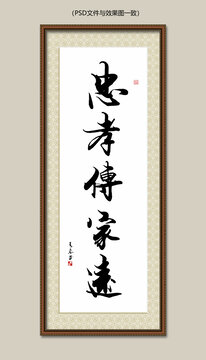 (PSD文件与效果图一致)
忠孝傳家遠